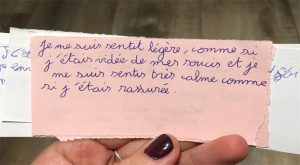 je me suis sentit légère, comme si
j'étais vidée de mes soucis et je
me suis sentis très calme comme
si j'étais rassurée.